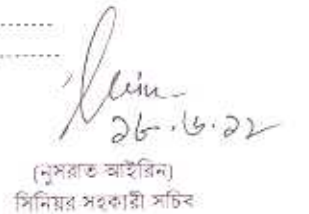 ২৮.৬.১২
(নুসরাত আইরিন)
সিনিয়র সহকারী সচিব